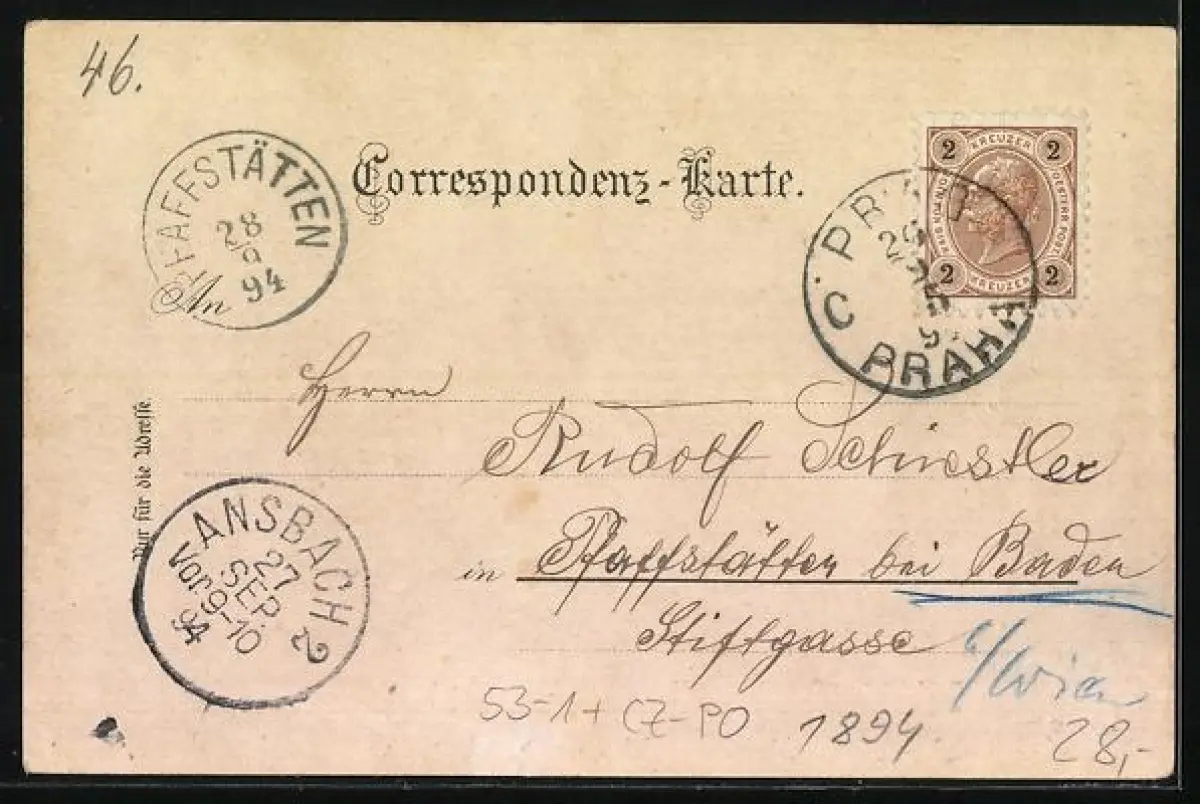 46.
PFAFFSTÄTTEN
28
9
94
An
Correspondenz-Karte.
2 KREUZER 2
2 KREUZER 2
PRAG
C PRAHA
Herrn
Rudolf Schiestler
in Pfaffstätten bei Baden
Stiftgasse
b/Wien
Nur für die Adresse.
ANSBACH 2
27
SEP.
Vor 9-10
94
53-1+ CZ-PO 1894
28,-